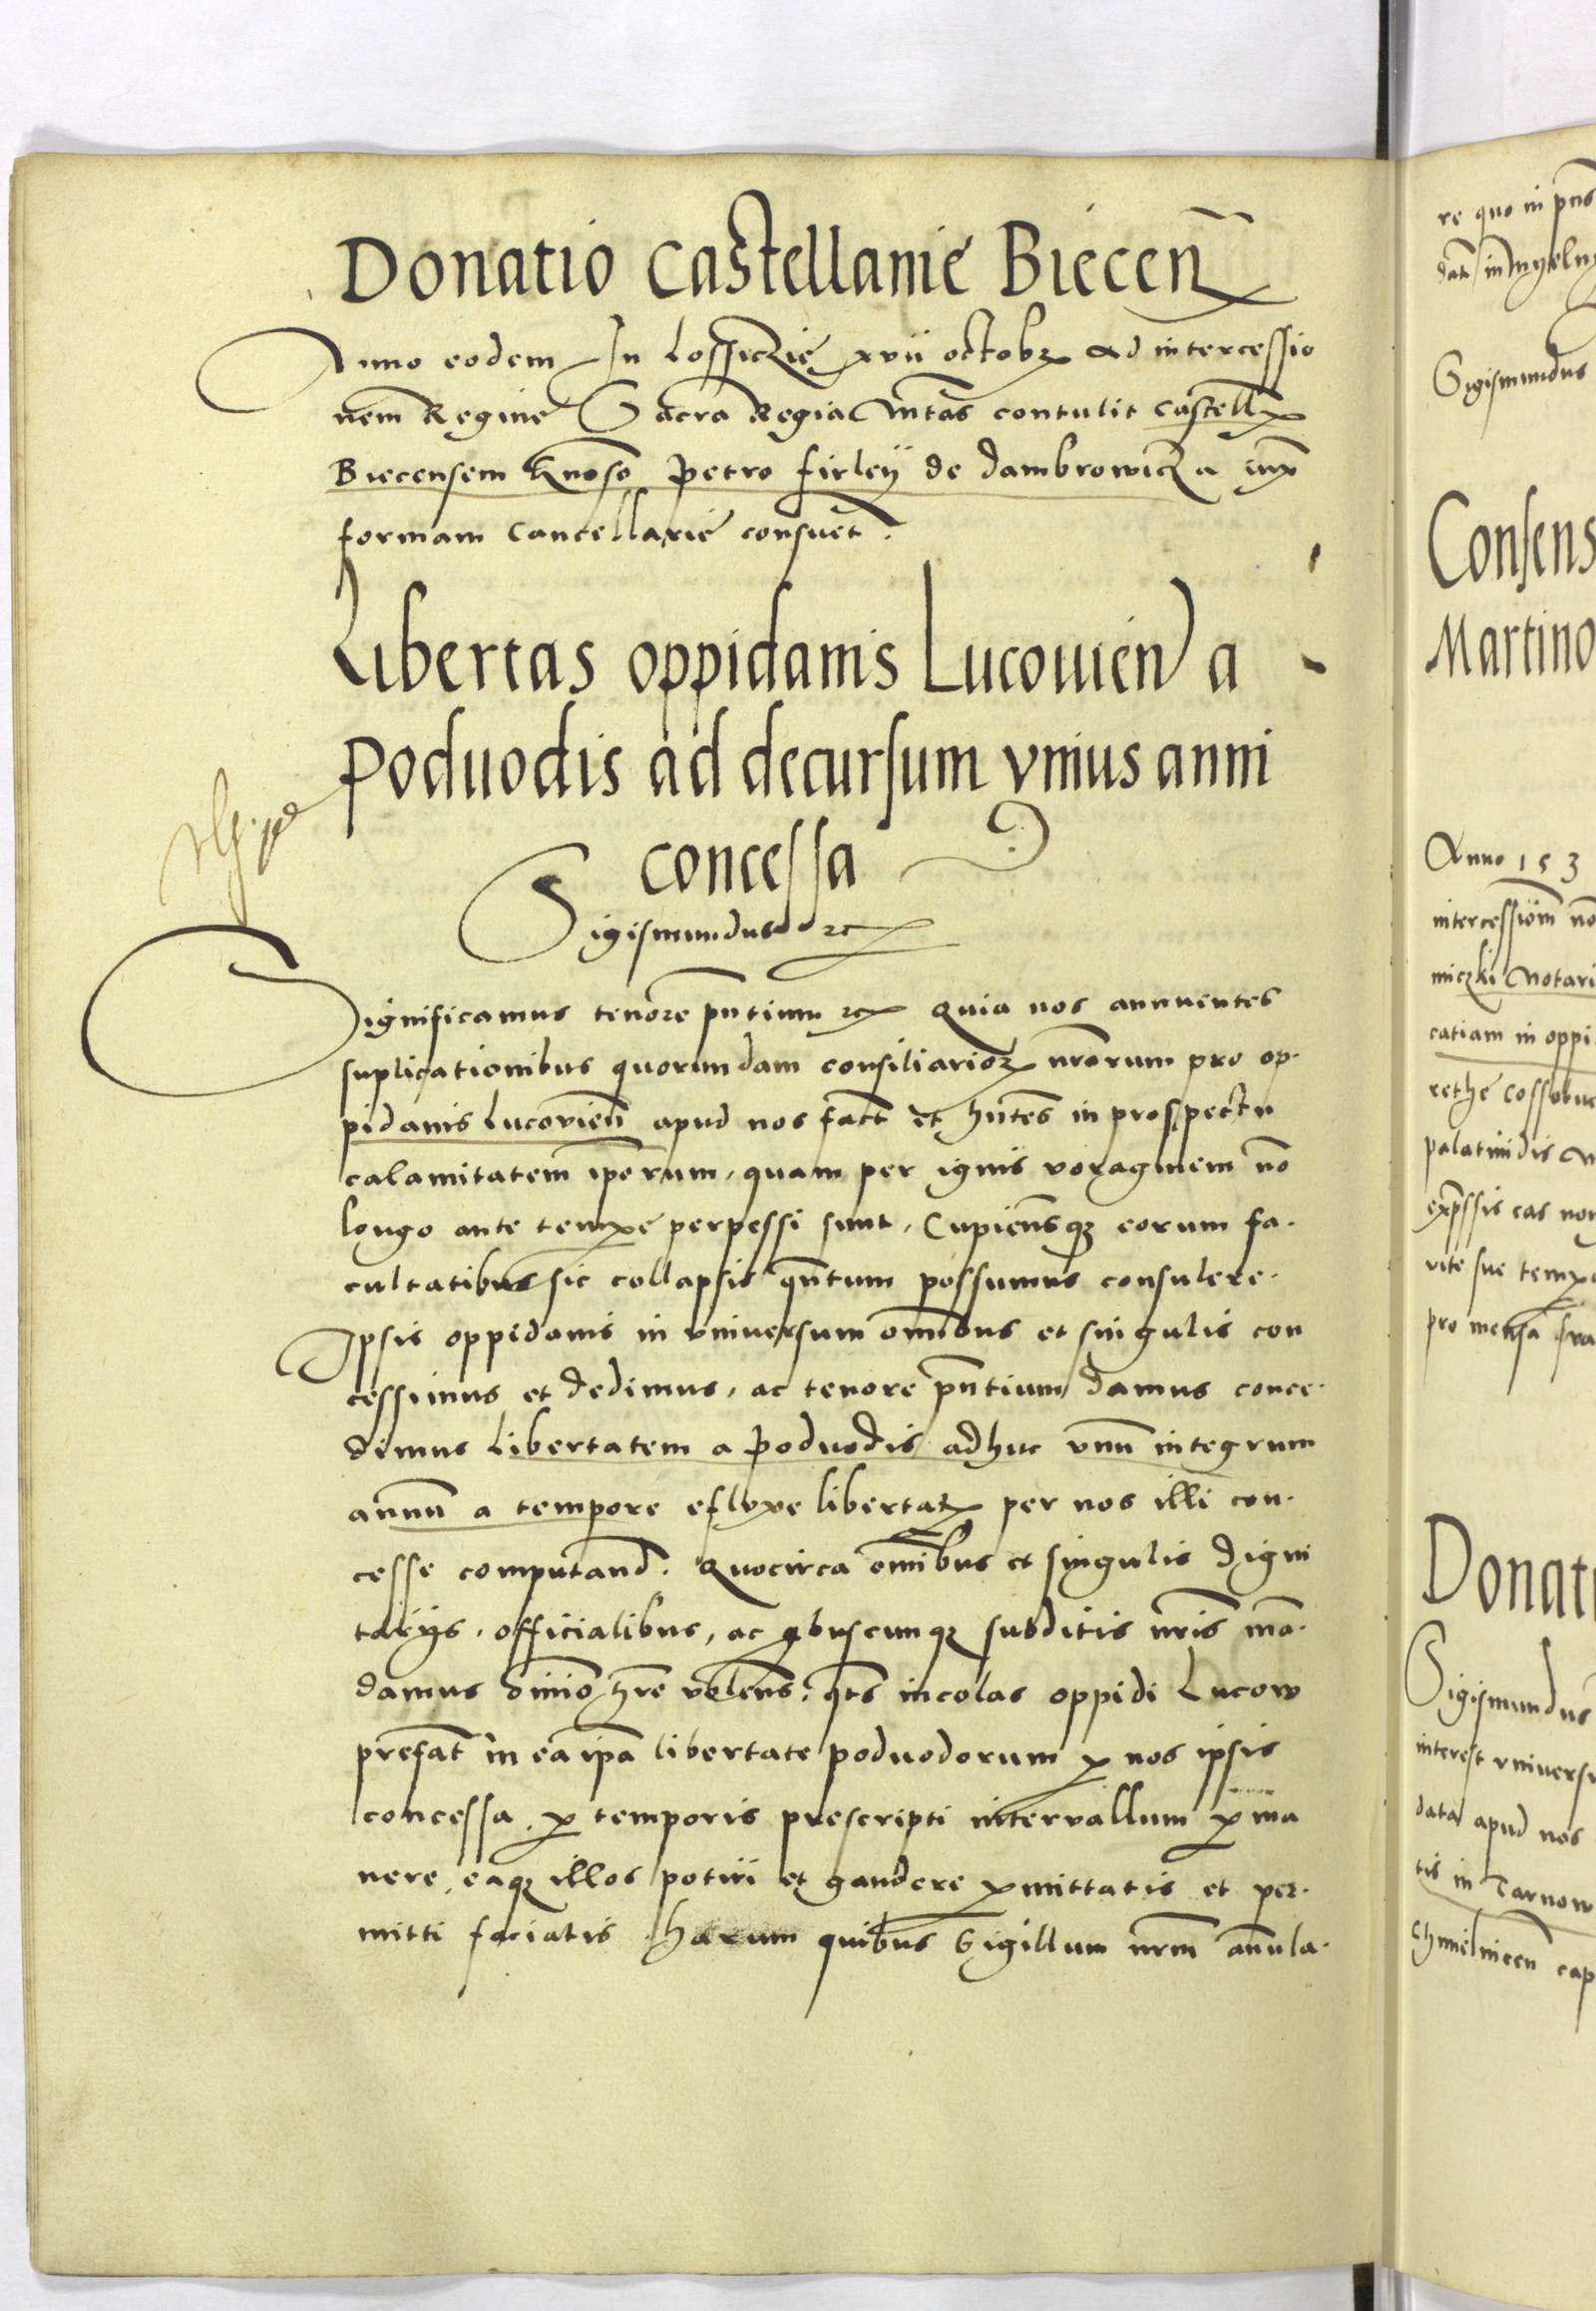 Donatio Castellanie Biecen̄
Anno eodem In Lossiczie xvii octobꝛ Ad intercessio
nem Regine Sacra Regia Mtas contulit Castell
Biecensem Gnoso Petro firleÿ de Dambrowicza iux
formam Cancellarie consuet.
Libertas oppidanis Lucouien a
Poduodis ad decursum vnius anni
concessa
Sigismundus etc
Significamus tenore pn̄tium etc Quia nos annuentes
suplicationibus quorundam consiliarioꝝ nr̄orum pro op-
pidanis Lucovien̄ apud nos fact et hn̄tes in prospectu
calamitatem ip̄orum, quam per ignis voraginem no
longo ante tempe perpessi sunt, Cupiensqꝫ eorum fa-
cultatibus sic collapsis qn̄tum possumus consulere.
Ipsis oppidanis in vniversum om̄ibus et singulis con
cessimus et dedimus, ac tenore pn̄tium damus conce-
dimus libertatem a poduodis adhuc vnū integrum
annū a tempore efluxe libertatꝫ per nos illi con-
cesse computand. Quocirca om̄ibus et singulis digni
tarÿs, officialibus, ac qbuscunqꝫ subditis nr̄is ma-
damus om̄io hr̄e volens, qts incolas oppidi Lucow
prefat in ea ipā libertate poduodorum ꝑ nos ipsis
concessa, ꝑ temporis prescripti intervallum ꝑma
nere, eaqꝫ illos potiri et gaudere ꝑmittatis et per-
mitti faciatis. Harum quibus Sigillum nr̄m annula-
re quo in pn̄s
Sigismundus
Consens
Martino
Anno 153
intercessiōm no
miczki Notari
catiam in oppi
palatinidis
vite sue temp
pro mensa
Donat
Sigismundus
interest vnivers
data apud nos
tis in Tarnow
Chmielnicen̄ cap